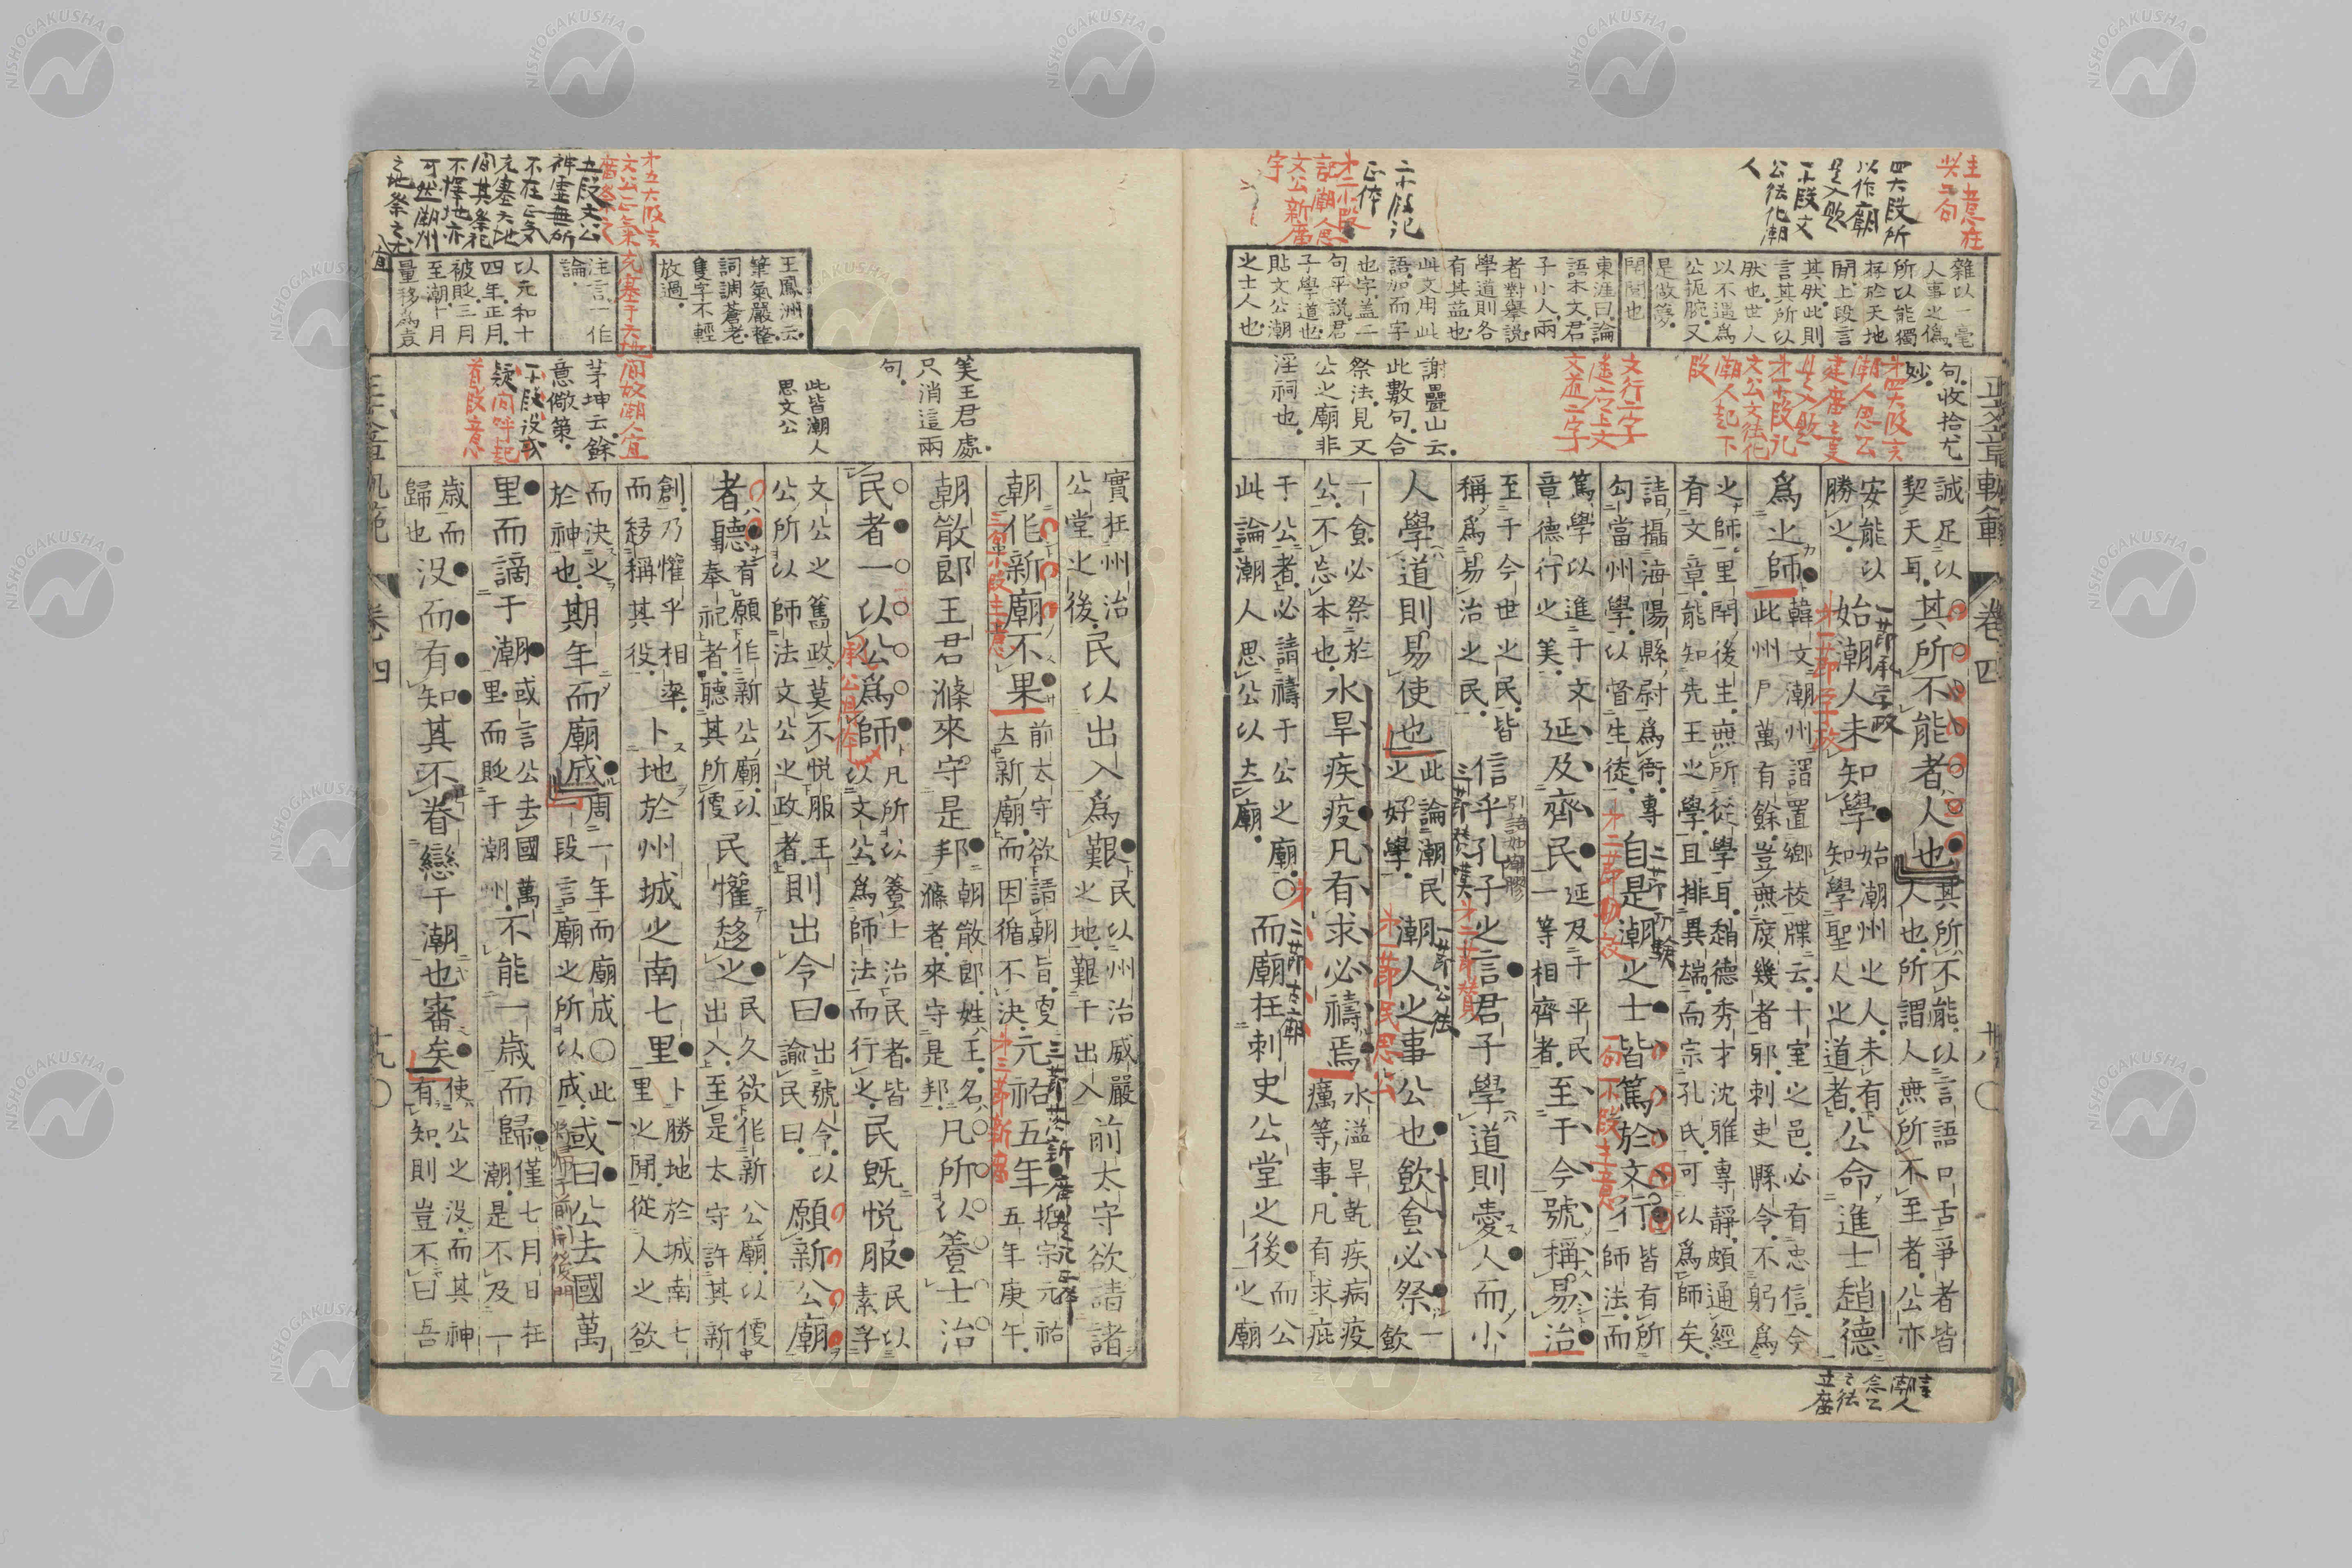 主意在
此二句
四大段所
以作廟
是入題
一小段文
公法化潮
人
二小段記
正体
才二小段
記潮人思
文公新廣
字
雜以一毫
人事之僞
所以能獨
存於天地
閒上段言
其然此則
言其所以
然也世人
以不遇爲
公扼腕又
是做夢
閈閭也
東涯曰論
語本文君
子小人兩
者對舉說
學道則各
有其益也
此文用此
語加而字
也字蓋二
句平說君
子學道也
貼文公潮
之士人也
句收拾尤
妙
才四大段言
潮人思公
建廣之意
是入題
才一小段記
文公文法化
潮人起下
段
文行二字
遙應上文
文道二字
謝疊山云
此數句合
祭法見文
公之廟非
淫祠也
正文章軌範 卷四 十八
誠足以
契天耳
其所不能者人也
其所不能以言語口舌爭者皆
人也所謂人無所不至者公亦
安能以
勝之
始潮人未知學
始潮州之人未有
知學聖人之道者
公命進士趙德
爲之師
韓文潮州請置鄉校牒云十室之邑必有忠信今
此州戶萬有餘豈無庶幾者邪刺吏縣令不躬爲
之師里閈後生無所從學耳趙德秀才沈雅專靜頗通經
有文章能知先王之學且排異端而宗孔氏可以爲師矣
請攝海陽縣尉爲衙專
勾當州學以督生徒
自是潮之士皆篤於文行
皆有所
師法而
篤學以進于文
章德行之美
延及齊民
延及于平民
一等相齊者
至于今號稱易治
至于今世之民皆
稱爲易治之民
信乎孔子之言君子學道則愛人而小
人學道則易使也
此論潮民
之好學
潮人之事公也飮食必祭
一
飮
一食必祭於
公不忘本也
水旱疾疫凡有求必禱焉
水溢旱乾疾病疫
癘等事凡有求庇
于公者必請禱于公之廟
此論潮人思公以立廟
○而廟在刺史公堂之後
而公
之廟
王鳳洲云
筆氣嚴整
詞調蒼老
隻字不輕
放過
注言一作
論
以元和十
四年正月
被貶三月
至潮十月
量移爲袁
才五大段言
文公正氣
充塞于天地間故潮人宜
五段文公
神靈無所
不在正氣
充塞天地
間其祭祀
不擇地亦
可然潮州
之地祭之尤
宜
笑王君處
只消這兩
句
此皆潮人
思文公
茅坤云餘
意儆策
疑問呼起
首段意
實在州治
公堂之後
民以出入爲艱
民以州治威嚴
之地艱于出入
前太守欲請諸
朝作新廟不果
前太守欲請朝旨更
立新廟而因循不決
元祐五年
按宗元祐
五年庚午
朝散郎王君滌來守是邦
朝散郎姓王名
滌者來守是邦
凡所以養士治
民者一以公爲師
凡所以養士治民者皆
以文公爲師法而行之
民旣悅服
民以
素孚
文公之舊政莫不悅服王
公所以師法文公之政者
則出令曰
出號令以
諭民曰
願新公廟
者聽
有願作新公廟以
奉祀者聽其所便
民懽趨之
民久欲作新公廟以便
出入至是太守許其新
創乃懽乎相率
而趍稱其役
卜地於州城之南七里
卜勝地於城南七
里之閒從人之欲
而決之
於神也
期年而廟成
周一年而廟成○此
一段言廟之所以成
或曰公去國萬
里而謫于潮
或言公去國萬
里而貶于潮州
不能一歲而歸
僅七月日在
潮是不及一
歲而
歸也
沒而有知其不眷戀于潮也審矣
使公之沒而其神
有知則豈不曰吾
卷四 十九